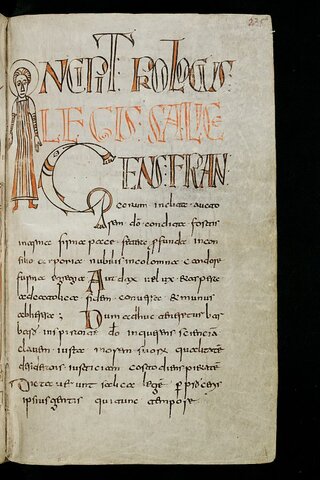 235
INCIPIT PROLOGUS
LEGIS SALICE
GENS FRAN
corum inclita aucto
re do condita fortis
in arma firma pace fetera profunda in con
silio corporia nobilis incolomna candore
forma egregia Audax velox et aspera
ad catolica fidem conversa et munus
ab heresa; Dum adhuc teneretur bar
bara inspirante do inquerens sciencia
clavem iusta morem suorum qualitatem
desiderans iusticiam costodiens pietatem
Dictaverunt salica lege per proceris
ipsius gentis qui tunc tempore